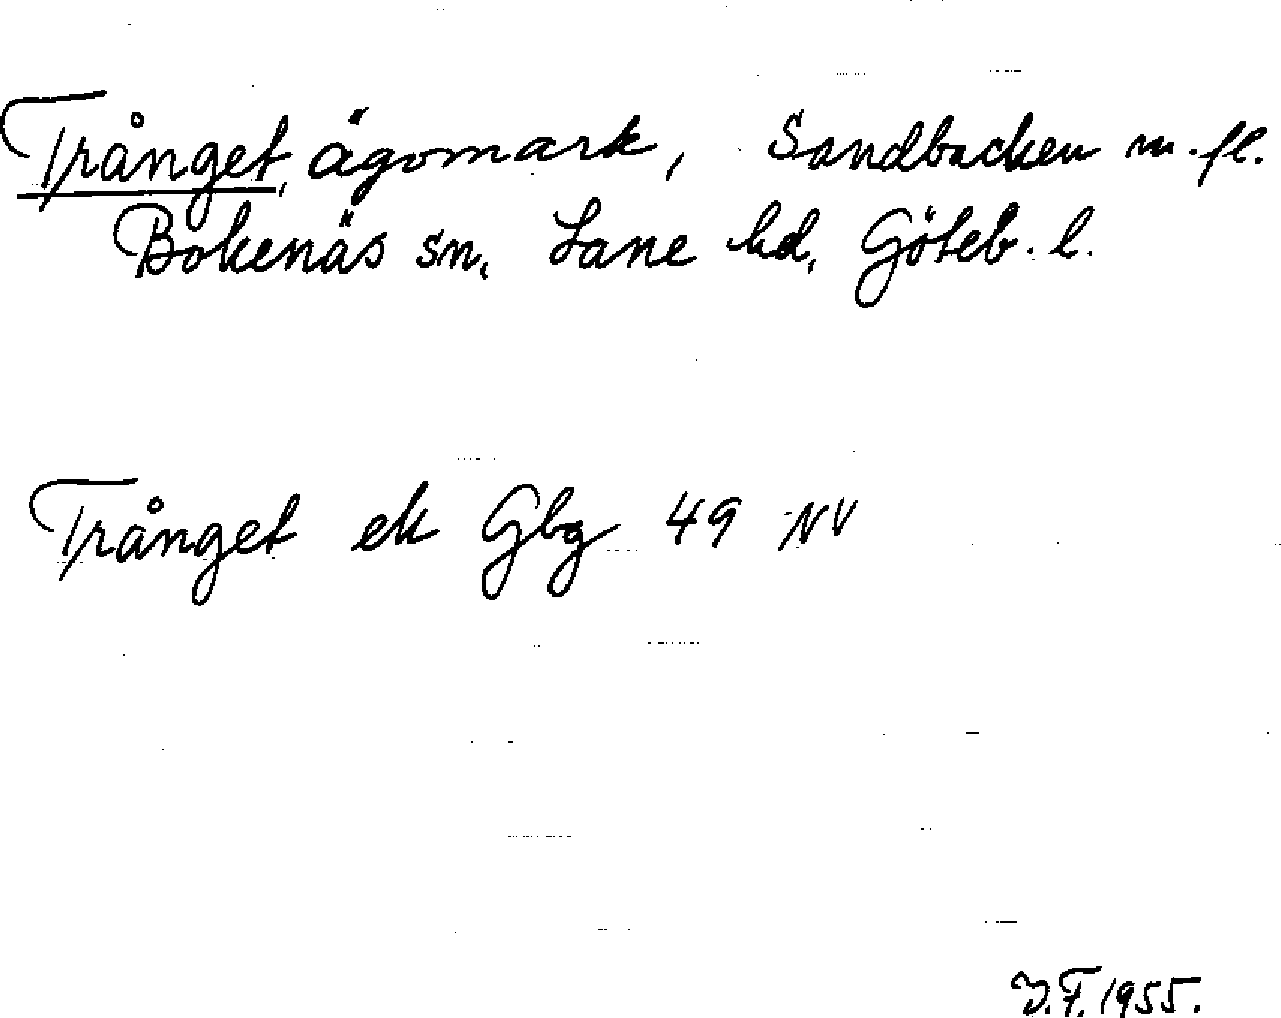 Trånget, ägomark, Sandbacken m. fl.
Bokenäs sn, Lane hd, Göteb. l.
Trånget ek Gbg 49 NV
J.F. 1955.